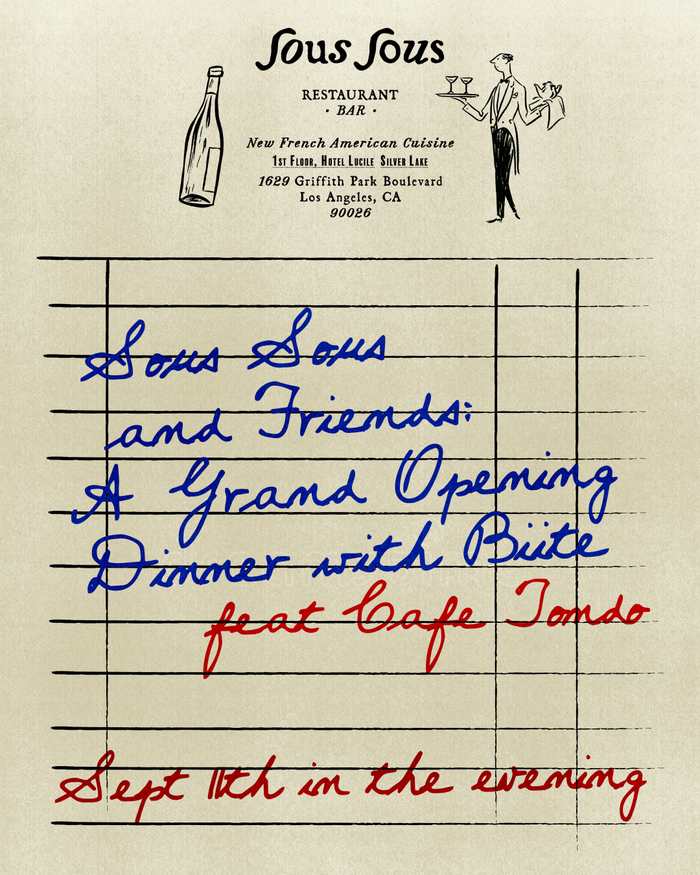 Sous Sous
RESTAURANT
· BAR ·
New French American Cuisine
1st Floor, Hotel Lucile Silver Lake
1629 Griffith Park Boulevard
Los Angeles, CA
90026
Sous Sous
and Friends:
A Grand Opening
Dinner with Büte
feat Cafe Tondo
Sept 11th in the evening